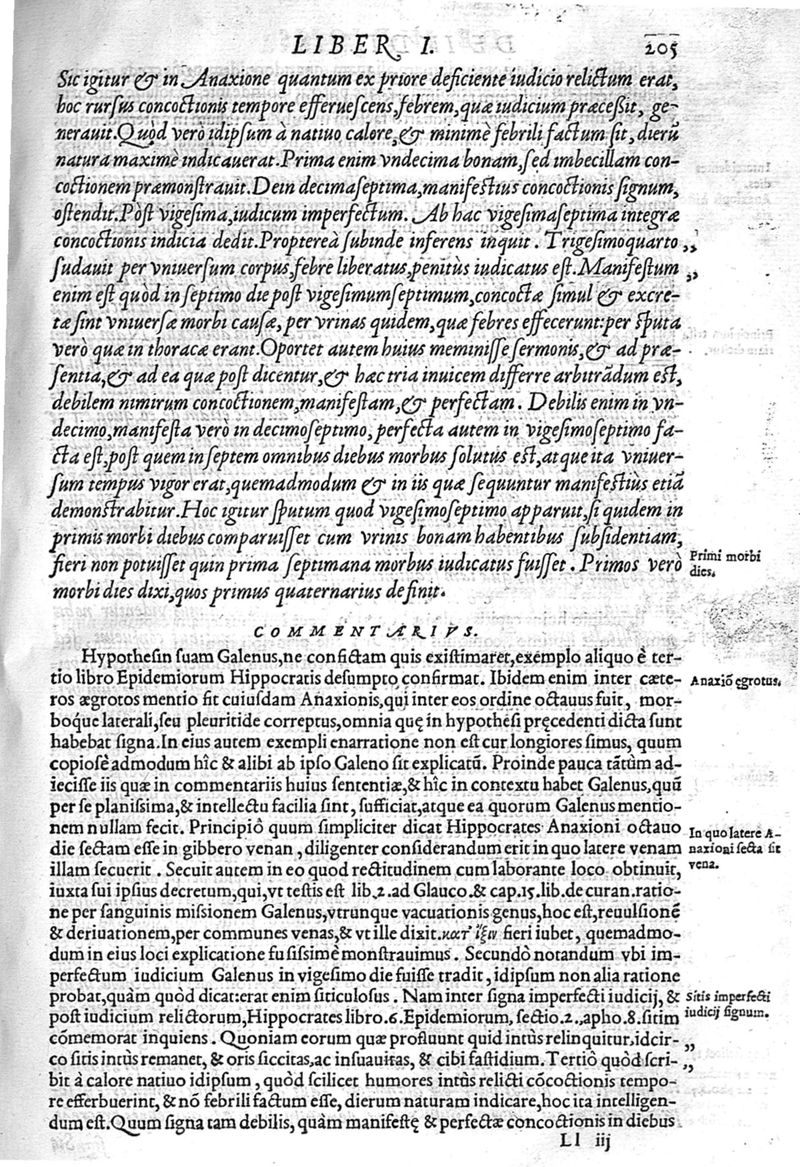 LIBER I. 205
Sic igitur & in Anaxione quantum ex priore deficiente iudicio relictum erat,
hoc rursus concoctionis tempore efferuescens, febrem, quæ iudicium præceßit, ge-
nerauit. Quòd verò idipsum à natiuo calore, & minimè febrili factum sit, dierũ
natura maximè indicauerat. Prima enim vndecima bonam, sed imbecillam con-
coctionem præmonstrauit. Dein decimaseptima, manifestius concoctionis signum,
ostendit. Pòst vigesima, iudicum imperfectum. Ab hac vigesimaseptima integræ
concoctionis indicia dedit. Propterea subinde inferens inquit. Trigesimoquarto „
sudauit per vniuersum corpus, febre liberatus, penitùs iudicatus est. Manifestum „
enim est quòd in septimo die post vigesimumseptimum, concoctæ simul & excre-
tæ sint vniuersæ morbi causæ, per vrinas quidem, quæ febres effecerunt: per sputa
verò quæ in thorace erant. Oportet autem huius meminisse sermonis, & ad præ-
sentia, & ad ea quæ post dicentur, & hæc tria inuicem differre arbitrãdum est,
debilem nimirum concoctionem, manifestam, & perfectam. Debilis enim in vn-
decimo, manifesta verò in decimoseptimo, perfecta autem in vigesimoseptimo fa-
cta est, post quem in septem omnibus diebus morbus solutus est, atque ita vniuer-
sum tempus vigor erat, quemadmodum & in iis quæ sequuntur manifestiùs etiã
demonstrabitur. Hoc igitur sputum quod vigesimoseptimo apparuit, si quidem in
primis morbi diebus comparuisset cum vrinis bonam habentibus subsidentiam,
fieri non potuisset quin prima septimana morbus iudicatus fuisset. Primos verò
morbi dies dixi, quos primus quaternarius definit.
Primi morbi
dies.
COMMENTARIVS.
Hypothesin suam Galenus, ne confictam quis existimaret, exemplo aliquo è ter-
tio libro Epidemiorum Hippocratis desumpto confirmat. Ibidem enim inter cæte-
ros ægrotos mentio fit cuiusdam Anaxionis, qui inter eos ordine octauus fuit, mor-
boque laterali, seu pleuritide correptus, omnia quę in hypothesi pręcedenti dicta sunt
habebat signa. In eius autem exempli enarratione non est cur longiores simus, quum
copiosè admodum hîc & alibi ab ipso Galeno sit explicatũ. Proinde pauca tãtùm ad-
iecisse iis quæ in commentariis huius sententiæ, & hîc in contextu habet Galenus, quũ
per se planissima, & intellectu facilia sint, sufficiat, atque ea quorum Galenus mentio-
nem nullam fecit. Principiô quum simpliciter dicat Hippocrates Anaxioni octauo
die sectam esse in gibbero venam, diligenter considerandum erit in quo latere venam
illam secuerit. Secuit autem in eo quod rectitudinem cum laborante loco obtinuit,
iuxta sui ipsius decretum, qui, vt testis est lib. 2. ad Glauco. & cap. 15. lib. de curan. ratio-
ne per sanguinis missionem Galenus, vtrunque vacuationis genus, hoc est, reuulsionẽ
& deriuationem, per communes venas, & vt ille dixit. κατ᾽ ἴξιν fieri iubet, quemadmo-
dum in eius loci explicatione fusissimè monstrauimus. Secundò notandum vbi im-
perfectum iudicium Galenus in vigesimo die fuisse tradit, idipsum non alia ratione
probat, quàm quòd dicat: erat enim siticulosus. Nam inter signa imperfecti iudicij, &
post iudicium relictorum, Hippocrates libro. 6. Epidemiorum, sectio. 2., apho. 8. sitim
cõmemorat inquiens. Quoniam eorum quæ profluunt quid intùs relinquitur, idcir- „
co sitis intùs remanet, & oris siccitas, ac insuauitas, & cibi fastidium. Tertiò quòd scri- „
bit à calore natiuo idipsum, quòd scilicet humores intùs relicti cõcoctionis tempo-
re efferbuerint, & nõ febrili factum esse, dierum naturam indicare, hoc ita intelligen-
dum est. Quum signa tam debilis, quàm manifestę & perfectæ concoctionis in diebus
Anaxiõ ęgrotus.
In quo latere A-
naxioni secta sit
vena.
Sitis imperfecti
iudicij signum.
Ll iij